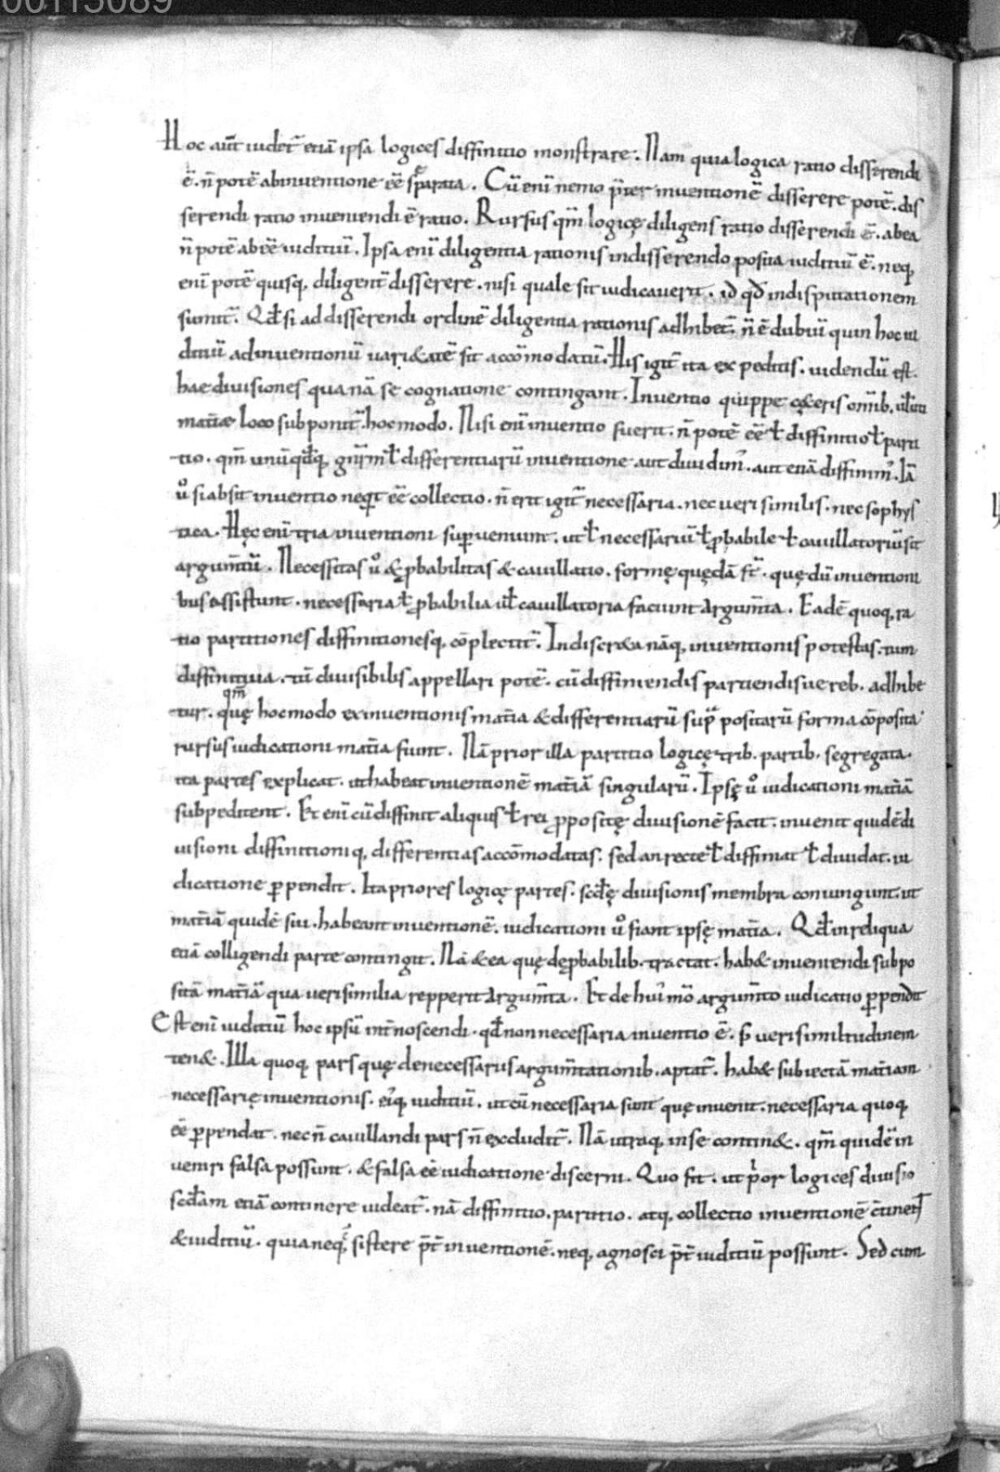 00113089
Hoc aut̄ uidet̄ etiā ipsa logices diffinitio monstrare. Nam quia logica ratio disserendi
ē. n̄ potē ab inuentione eē separata. Cū eni nemo p̄ter inuentionē disserere potē. dis
serendi ratio inueniendi ē ratio. Rursus qm̄ logicę diligens ratio disserendi ē. abea
n̄ potē abeē iuditiū. Ipsa eni diligentia rationis indisserendo posita iuditiū ē. neq;
eni potē quisq; diligent̄ disserere. nisi quale sit iudicauerit. id qđ indisputationem
sumit̄. Qđ si ad disserendi ordinē diligentia rationis adhibet̄. n̄ ē dubiū quin hoc iu
ditiū adinuentionū uari&atē sit accōmodatū. His igit̄ ita expeditis. uidendū est.
hae diuisiones quanā se cognatione contingant. Inuentio quippe c&eris omib; uł uti
materiæ loco subponit̄. hoc modo. Nisi eni inuentio fuerit. n̄ potē eē ł diffinitio ł parti
tio. qm̄ unū qđq; gn̄rm ł differentiarū inuentione aut diuidim᾿. aut etiā diffinim᾿. Iā
u̇ si absit inuentio nequit eē collectio. n̄ erit igit̄ necessaria. nec ueri similis. nec sophys
tica. Hęc eni tria inuentioni sup̄ueniunt. ut ł necessariū ł p̄babile ł cauillatoriū sit
argum̄tū. Necessitas u̇ & p̄babilitas & cauillatio. formę quędā st̄. quę dū inuentioni
bus assistunt. necessaria ł p̄babilia uł cauillatoria faciunt argum̄ta. Eadē quoq; ra
tio partitiones diffinitionesq; cōplectit̄. Indiscr&a nāq; inuentionis potestas. tum
diffinitiua. tū diuisibilis appellari potē. cū diffiniendis partiendisue reb; adhibe
qm̄
tur. quę hoc modo ex inuentionis mat̄ia & differentiarū sup̄ positarū forma cōposita
rursus iudicationi mat̄ia fiunt. Nā prior illa partitio logicę trib; partib; segregata.
ita partes explicat. ut habeat inuentionē mat̄iā singularū. Ipsę u̇ iudicationi mat̄iā
subpeditent. Et eni cū diffinit aliquis ł rei p̄positę diuisionē facit. inuenit quidē di
uisioni diffinitioniq; differentias accōmodatas. sed an recte ł diffiniat ł diuidat. iu
dicatione p̄pendit. Ita priores logicę partes. scđę diuisionis membra coniungunt. ut
mat̄iā quidē sui. habeant inuentionē. iudicationi u̇ fiant ipsę mat̄ia. Qđ in reliqua
etiā colligendi parte contingit. Nā & ea quę de p̄babilib; tractat. hab& inueniendi subpo
sitā mat̄iā qua uerisimilia repperit argum̄ta. Et de hui᾿ mō argum̄to iudicatio p̄pendit
Est eni iuditiū hoc ipsū int̄noscendi. qđ non necessaria inuentio ē. s; uerisimilitudinem
ten&. Illa quoq; pars quę de necessariis argum̄tationib; aptat̄. hab& subiectā mat̄iam
necessarię inuentionis. ei᾿q; iuditiū. ut cū necessaria sint quę inuenit. necessaria quoq;
eē p̄pendat. nec n̄ cauillandi pars n̄ excludit̄. Nā utraq; in se contin&. qm̄ quidē in
ueniri falsa possunt. & falsa eē iudicatione discerni. Quo fit. ut p̄or logices diuisio
scđam etiā continere uideat̄. nā diffinitio. partitio. atq; collectio inuentionē c̄tinet
& iuditiū. quia neq; sistere p̄t̄ inuentionē. neq; agnosci p̄t̄ iuditiū possunt. Sed cum